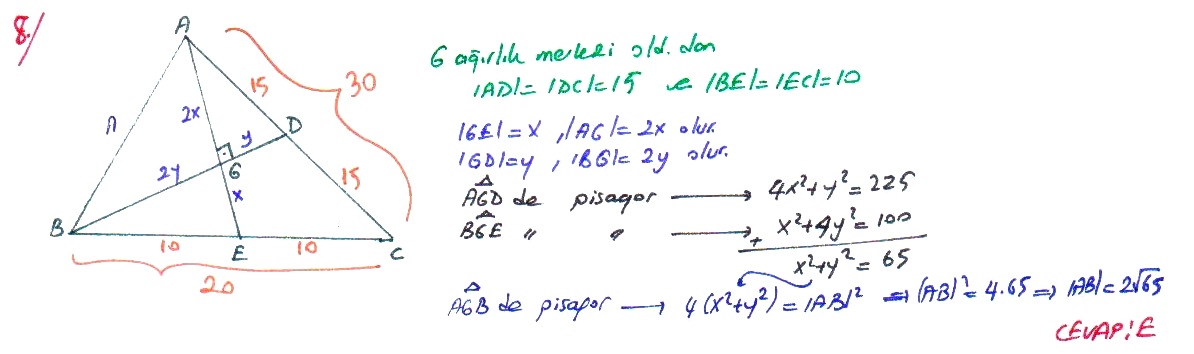 8/
A
15
30
n
2x
y
D
2y
G
15
x
B
10
E
10
C
20
G ağırlık merkezi old. dan
|AD|=|DC|=15 ve |BE|=|EC|=10
|GE|=x, |AG|=2x olur.
|GD|=y, |BG|=2y olur.
AGD de pisagor → 4x²+y²=225
BGE " " → x²+4y²=100
+
x²+y²=65
AGB de pisagor → 4(x²+y²)=|AB|² ⇒ |AB|²=4.65 ⇒ |AB|=2√65
CEVAP:E